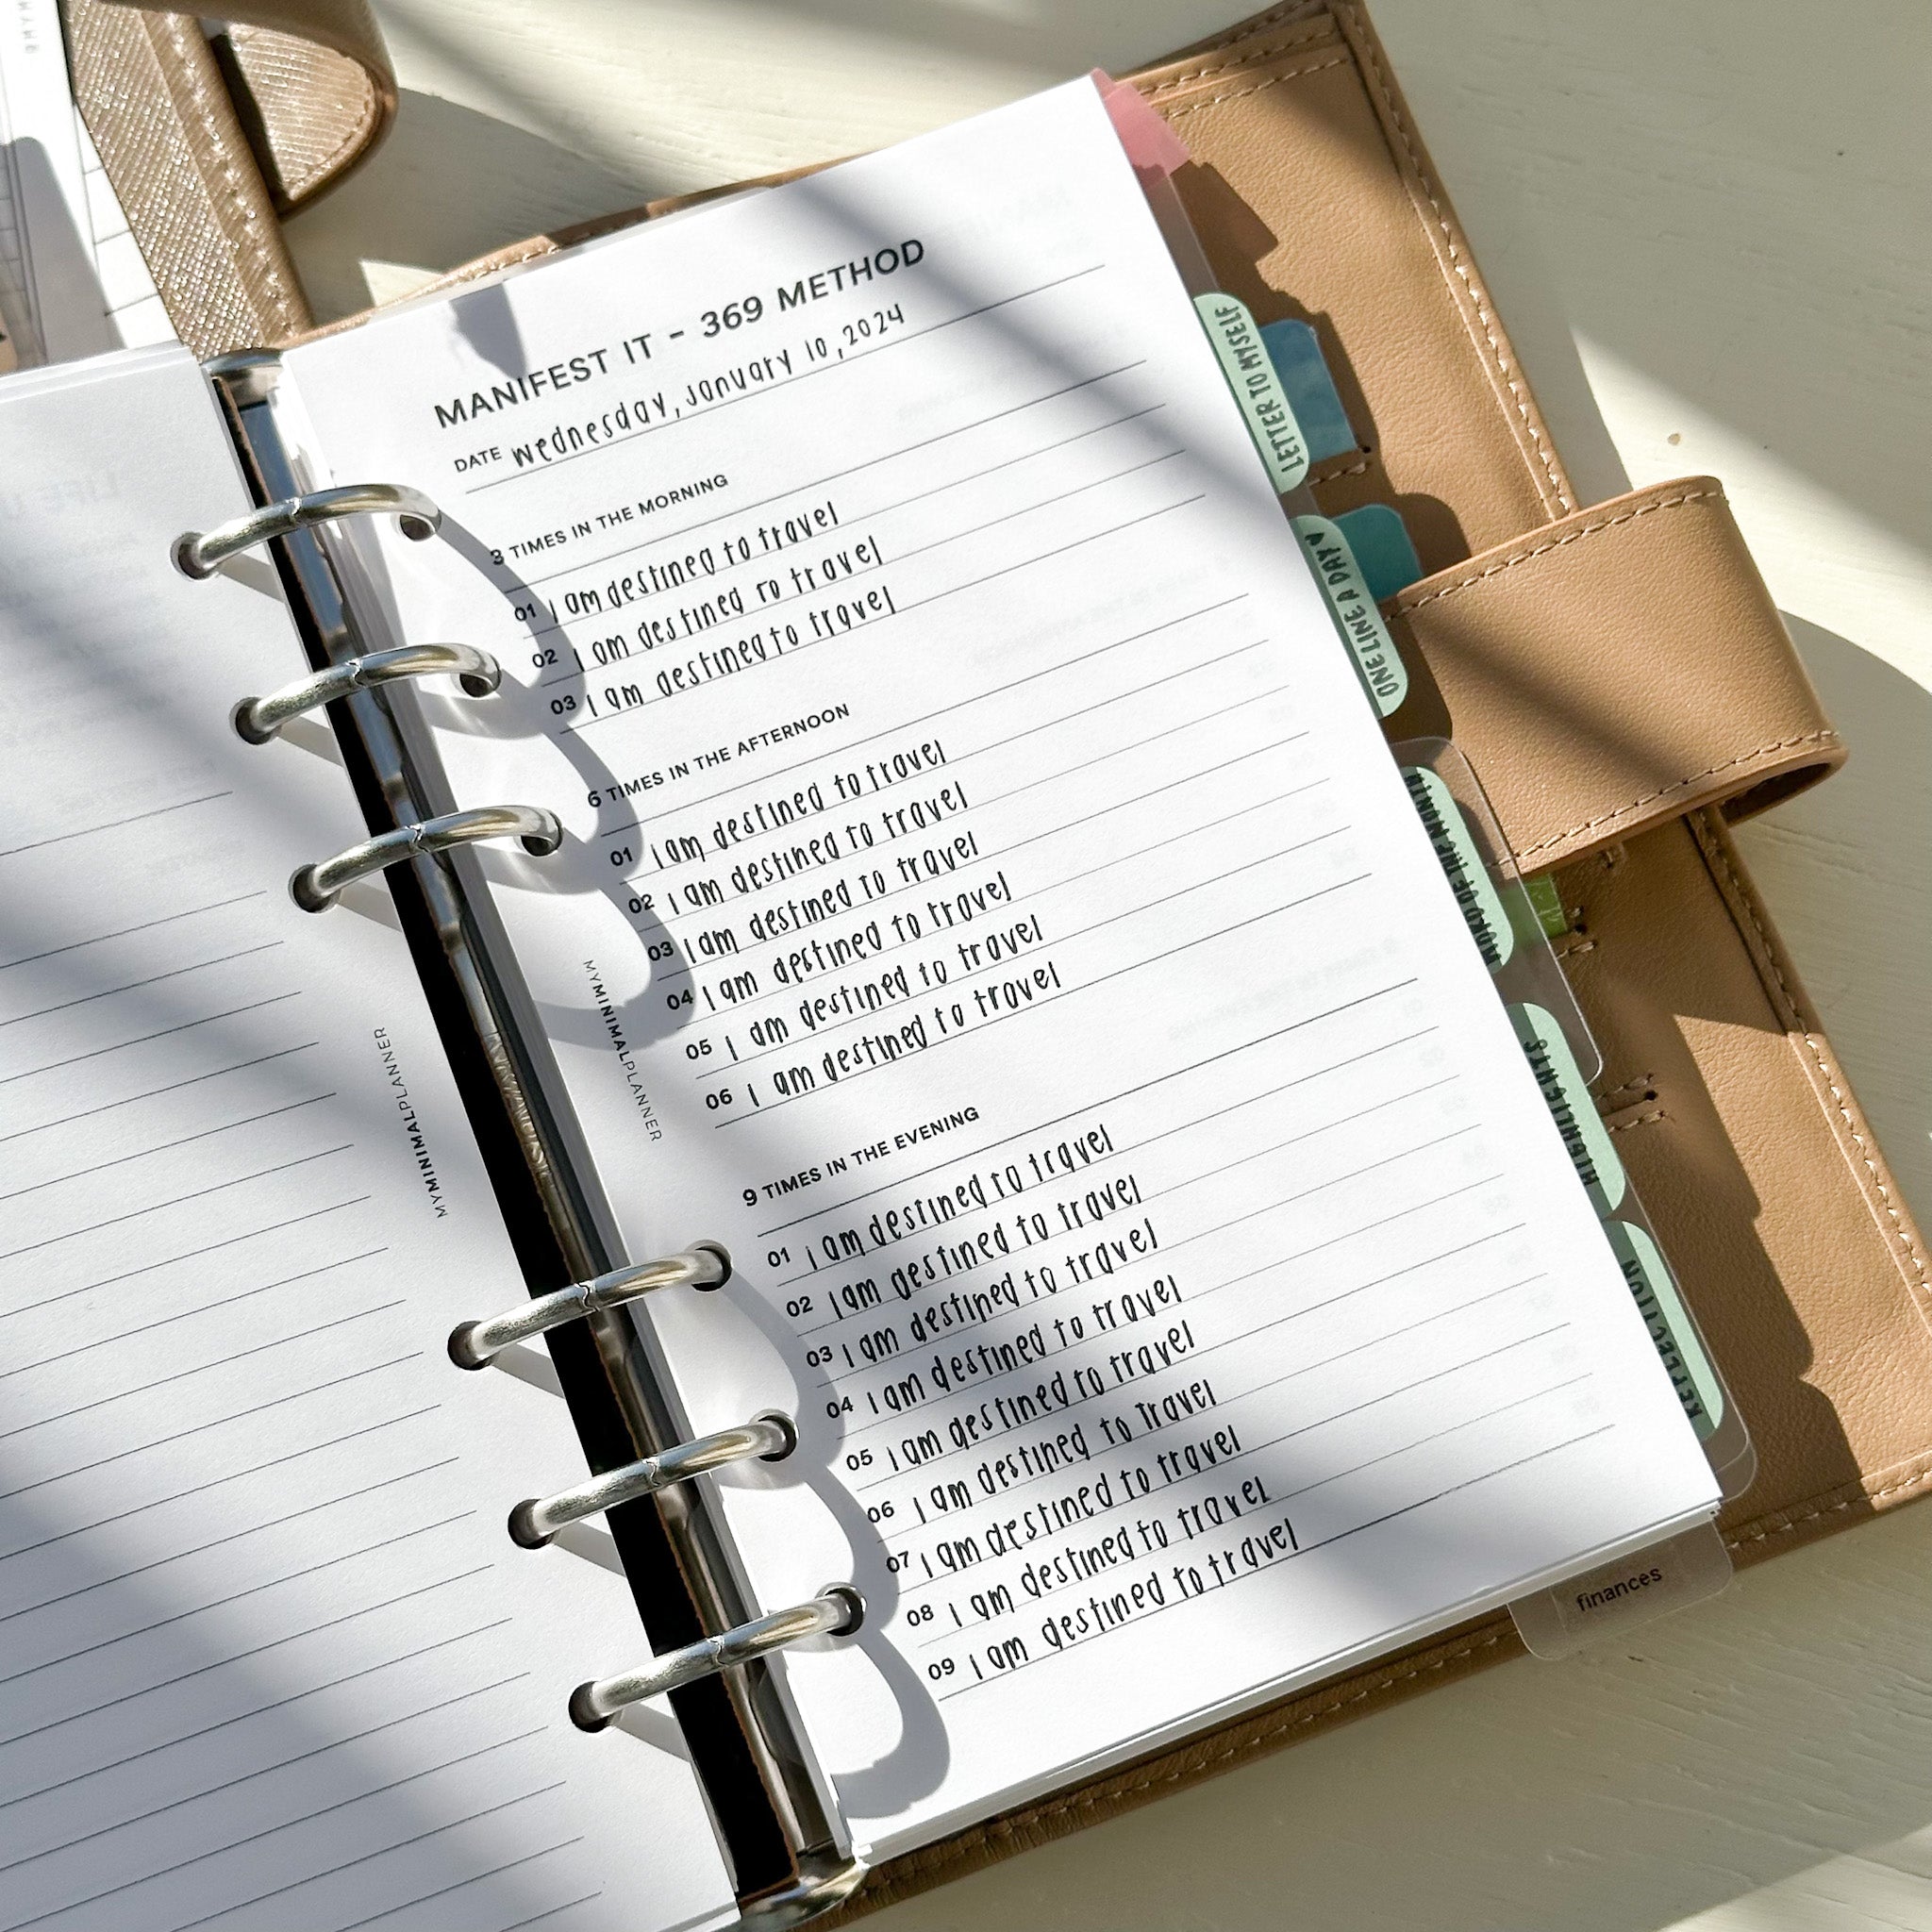 MANIFEST IT - 369 METHOD
DATE Wednesday, January 10, 2024
3 TIMES IN THE MORNING
01 I am destined to travel
02 I am destined to travel
03 I am destined to travel
6 TIMES IN THE AFTERNOON
01 I am destined to travel
02 I am destined to travel
03 I am destined to travel
04 I am destined to travel
05 I am destined to travel
06 I am destined to travel
9 TIMES IN THE EVENING
01 I am destined to travel
02 I am destined to travel
03 I am destined to travel
04 I am destined to travel
05 I am destined to travel
06 I am destined to travel
07 I am destined to travel
08 I am destined to travel
09 I am destined to travel
MYMINIMALPLANNER
MYMINIMALPLANNER
LETTER TO MYSELF
ONE LINE A DAY
WORD OF THE MONTH
HIGHLIGHTS
REFLECTION
finances